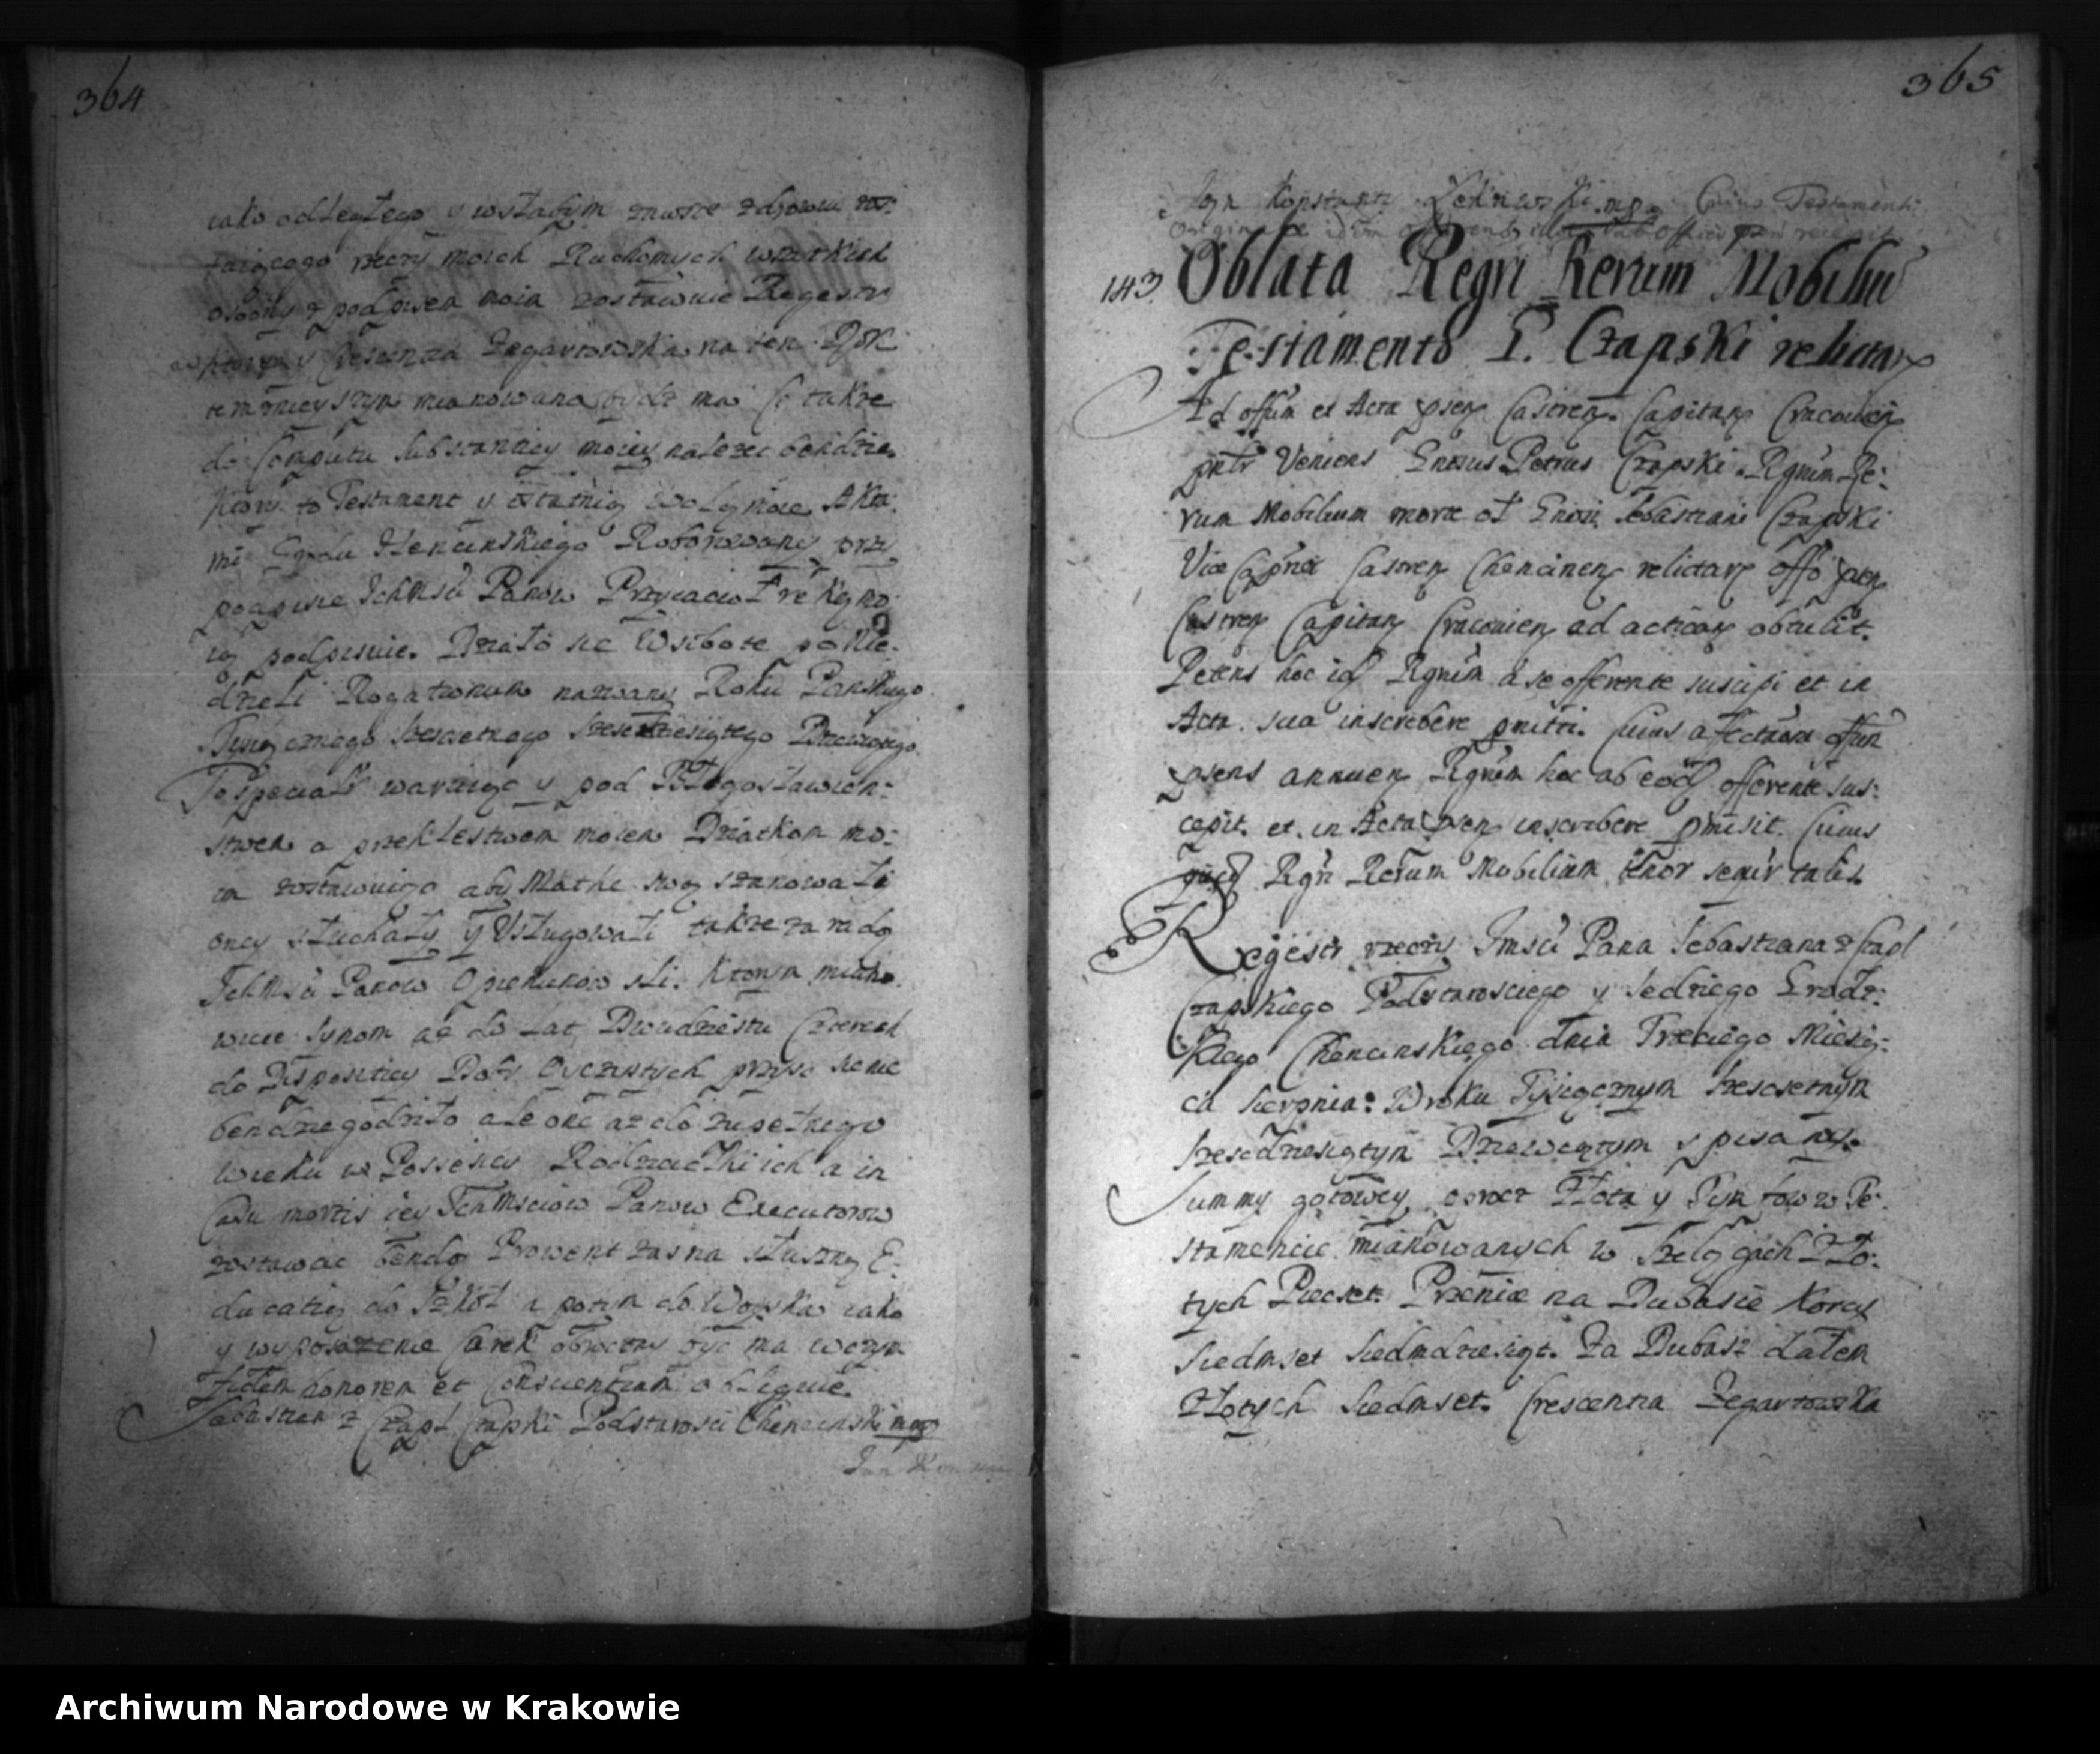 364
iako odległego y wsłabym zawsze zdrowiu zos:
taiącego rzeczy moich Ruchomych wszytkich
osobny z podpisem moim zostawuie Regestr
w ktorym y Crescentia Zegartowska na ten Rok
temrznieyszym mianowana bydz ma Co także
do Computu Substantiey moiey należec bendzie.
ktory to Testament y ostatnią Wolą moie Akta:
mi Grodu Chencinskiego Roborowany przy
podpisie Ichmsciů Panow Przyiacioł ręką mo:
ią podpisuie. Działo sie Wsobote po Nie:
dzieli Rogationum nazwany Roku Panskiego
Tysiącznego szescsetnego szescdziesiątego Dziewiątego
To specialr waruiąc y pod Błogosławien:
stwem a przeklestwem moiem Dziatkom mo:
im zostawuiąc aby Matke swoą szanowali
oney słuchały y Usługowali także za radą
Ichmsciů Panow Opiekunow szli. Ktorym miano
wicie Synom aż do Lat Dwudziestu Czterech
do Dispositiey Dobr Oyczystych przysc sie nie
bendzie godziło ale one aż do zupełnego
wieku w Possesiey Rodzicielki ich a in
Casu mortis iey Ichmsciow Panow Executorow
zostawac bendą Prowent zas na słuszną E:
ducatią do Szkoł a potym do Woyska iako
y wyposażenie Corek obrocony byc ma wczym
fidem honorem et Conscientiam obliguie.
Sebastian z Czapl Czapski Podstarosci Chencinski mpp
Jan
365
Jan Konstanti mpp Cuius Testamenti
Originale idem offerens
143. Oblata Regri Rerum Mobiliu
Testamento G. Czapski relictar
Ad offm et Acta psen Castren. Capitan Cracouien
pntr Veniens Gnosus Petrus Czapski Rgrum Re:
rum Mobilium morte ol Gnosi Sebastiani Czapski
Vice Capnei Castren Chencinen relictar offo psen
Castren Capitan Cracouien ad actican obtulit.
Petens hoc id Rgrum a se offerente suscipi et in
Acta sua inscribere pmitti. Cuius affectaoni offm
psens annuen Rgrum hoc ab eod offerente sus:
cepit et in Acta psen inscribere pmisit. Cuius
quid Rgri Rerum Mobilium tenor sequir talis.
Regestr rzeczy Jmsci Pana Sebastiana z Czapl
Czapskiego Podstarosciego y Sedziego Grodz:
kiego Chencinskiego dnia Trzeciego Miesią:
ca Sierpnia: W roku Tysiącznym szescsetnym
szescdziesiątym Dziewiątym spisany.
Summy gotowey oprocz Złota y Fun tow w Te:
stamencie mianowanych w szelągach Zło:
tych Piecset. Przenice na Dubasie korcy
Siedmset Siedmdziesiąt. Za Dubasz dałem
Złotych Siedmset. Crescentia Zegartowska
Archiwum Narodowe w Krakowie